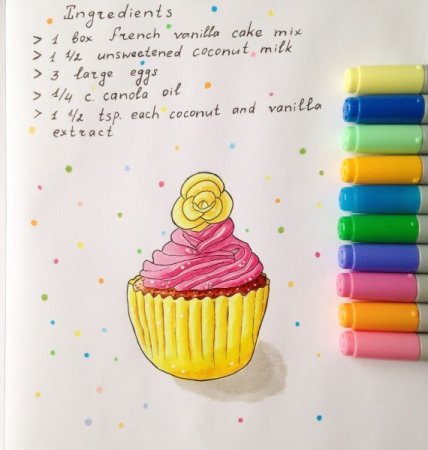 Ingredients
> 1 box French vanilla cake mix
> 1 1/2 unsweetened coconut milk
> 3 large eggs
> 1/4 c. canola oil
> 1 1/2 tsp. each coconut and vanilla
extract